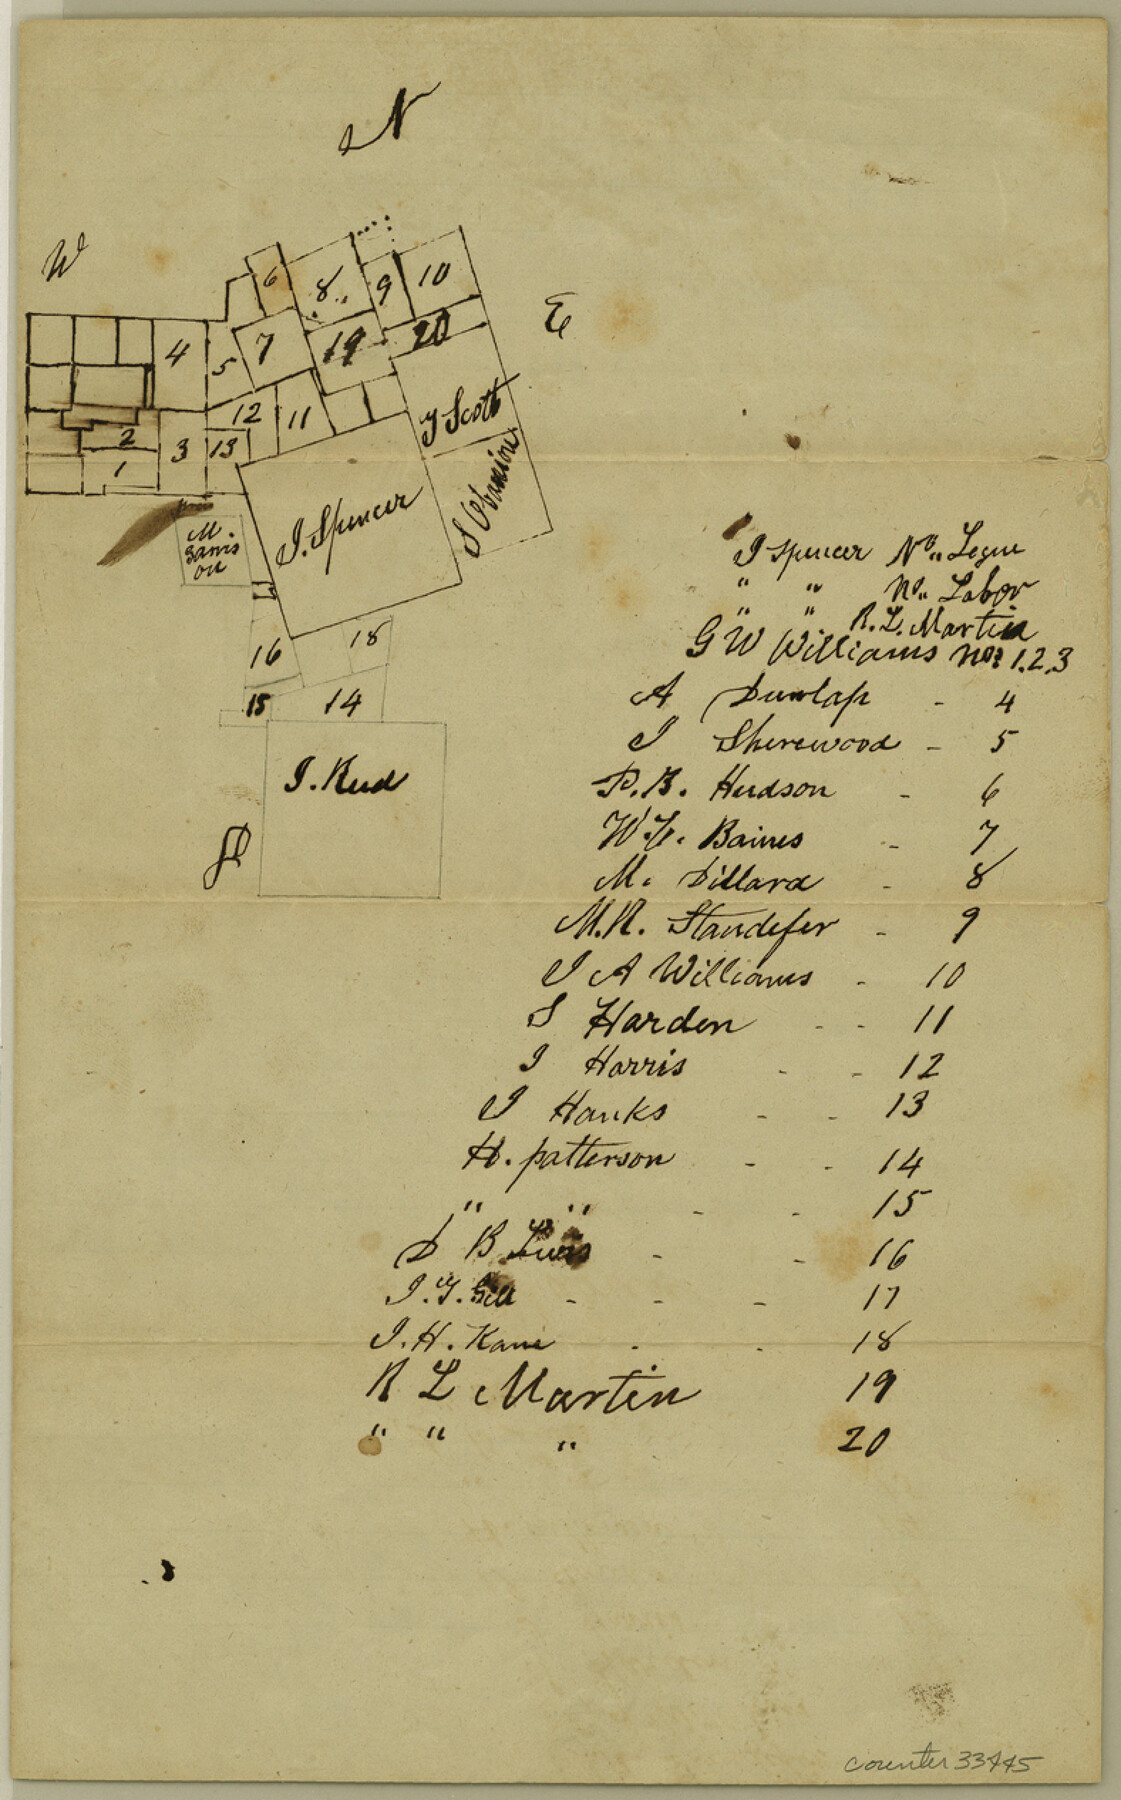 N
W
E
6
8
9
10
4
5
7
19
20
12
11
J Scott
2
3
13
1
J. Spencer
M.
Garris
on
16
18
15
14
J. Reed
S
J Spencer No. Legue
" " No. Labor
" " R. L. Martin
G W Williams Nos 1.2.3
A Dunlap - 4
J Sherewood - 5
P. B. Hudson - 6
W. F. Baines - 7
M. Dillard - 8
M. R. Standefer - 9
J A Williams - 10
S Harden - - 11
J Harris - - 12
J Hanks - - 13
H. patterson - - 14
" " - - 15
D B Lewis - - 16
J. G. Gill - - - 17
J. H. Kane - - 18
R L Martin 19
" " " 20
counter 33445